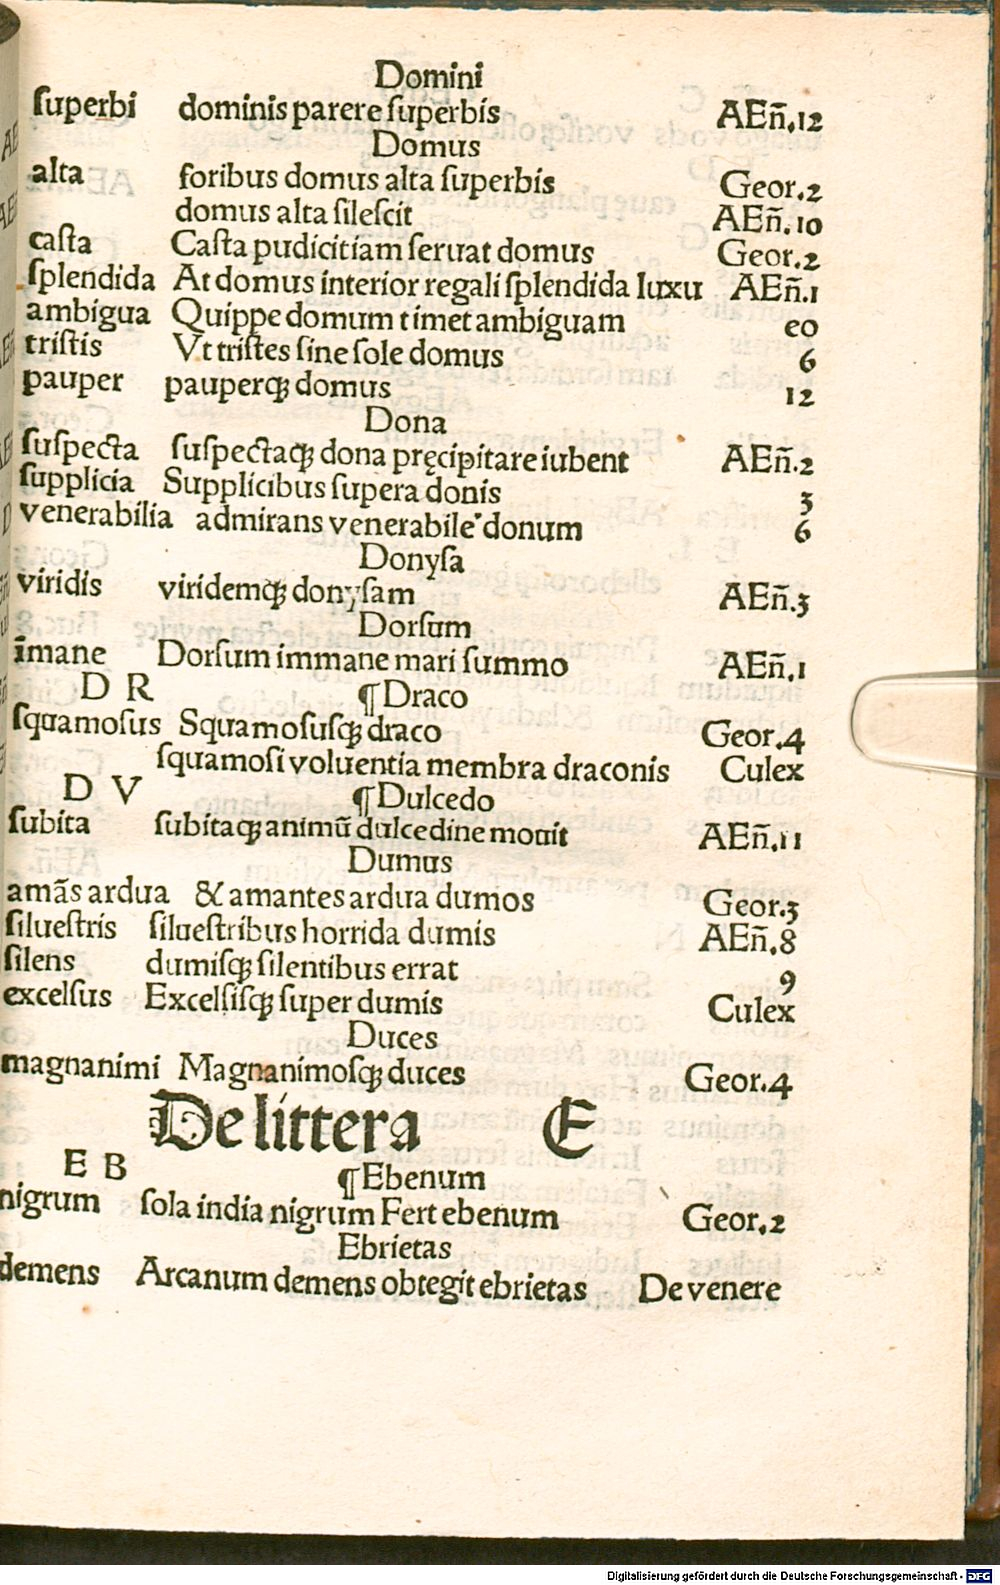 Domini
ſuperbi dominis parere ſuperbis AEñ.12
Domus
alta foribus domus alta ſuperbis Geor.2
domus alta ſileſcit AEñ.10
caſta Caſta pudicitiam ſeruat domus Geor.2
ſplendida At domus interior regali ſplendida luxu AEñ.1
ambigua Quippe domum timet ambiguam eo
triſtis Vt triſtes ſine ſole domus 6
pauper pauperqꝫ domus 12
Dona
ſuſpecta ſuſpectaqꝫ dona pręcipitare iubent AEñ.2
ſupplicia Supplicibus ſupera donis 3
venerabilia admirans venerabile donum 6
Donyſa
viridis viridemqꝫ donyſam AEñ.3
Dorſum
īmane Dorſum immane mari ſummo AEñ.1
D R ¶Draco
ſquamoſus Squamoſusqꝫ draco Geor.4
ſquamoſi voluentia membra draconis Culex
D V ¶Dulcedo
ſubita ſubitaqꝫ animū dulcedine mouit AEñ.11
Dumus
amãs ardua & amantes ardua dumos Geor.3
ſilueſtris ſilueſtribus horrida dumis AEñ.8
ſilens dumiſqꝫ ſilentibus errat 9
excelſus Excelſiſqꝫ ſuper dumis Culex
Duces
magnanimi Magnanimoſqꝫ duces Geor.4
De littera E
E B ¶Ebenum
nigrum ſola india nigrum Fert ebenum Geor.2
Ebrietas
demens Arcanum demens obtegit ebrietas De venere
Digitalisierung gefördert durch die Deutsche Forschungsgemeinschaft - DFG